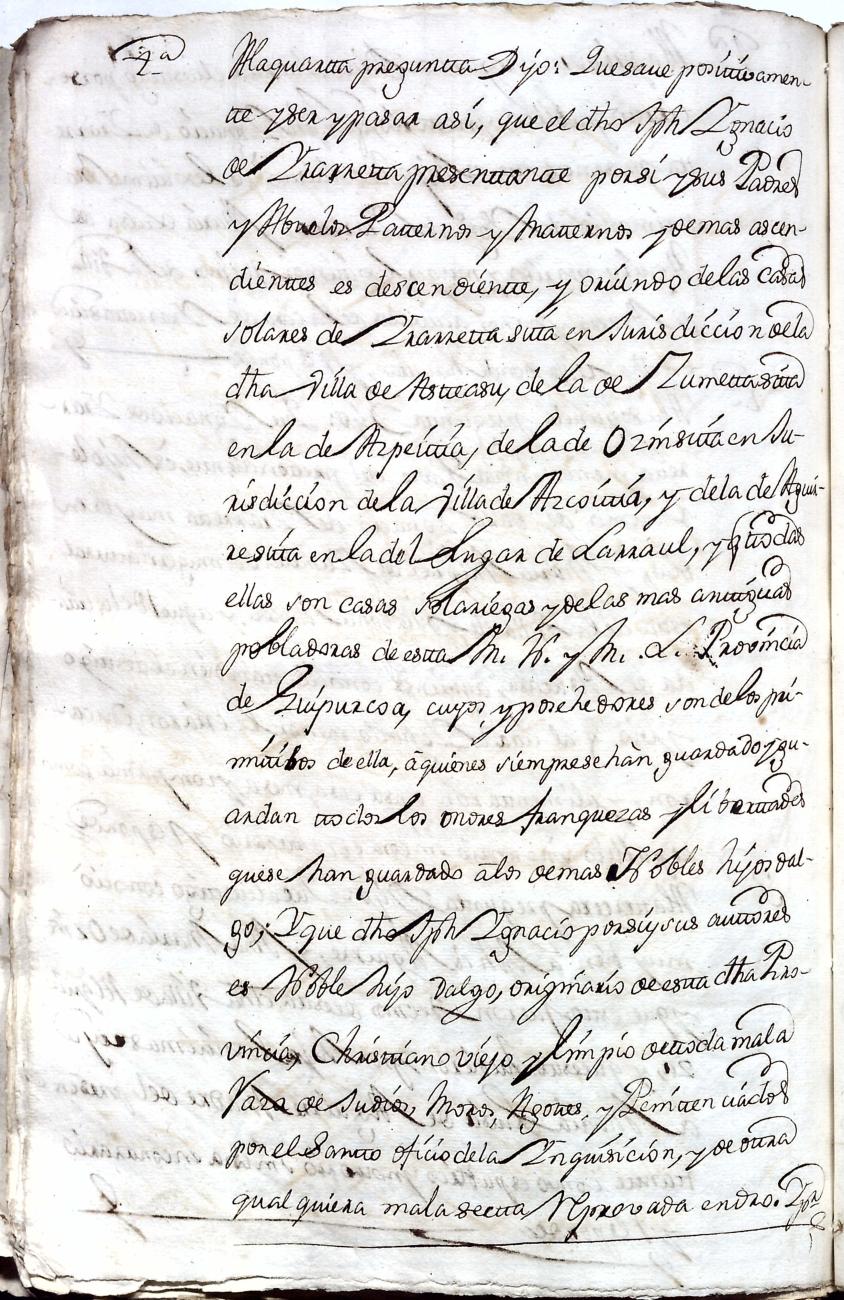 4ª
A la quartta preguntta Dijo: Que save posittivamen-
tte y ser y pasar así, que el dho Jph Ygnacio
de Yrarretta presenttantte por sí y sus Padres
y Abuelos Patternos y Matternos y demas ascen-
dienttes es descendientte, y oriundo de las casas
solares de Yrarretta sitta en Jurisdiccion de la
dha Villa de Astteasu, de la de Zumetta sitta
en la de Azpeittia, de la de Ozin sitta en Ju-
risdiccion de la Villa de Azcoittia, y de la de Aguir-
re sitta en la del Lugar de Larraul, y q ttodas
ellas son casas solariegas y de las mas anttiguas
pobladoras de estta M. N. y M. L. Provincia
de Guipuzcoa, cuyos y posehedores son de los pri-
mittibos de ella, â quienes siempre se hàn guardado y gu-
ardan ttodos los onores franquezas y liberttades
que se han guardado â los demas Nobles hijos dal-
go; Y que dho Jph Ygnacio por si y sus auttores
es Noble hijo dalgo, originario de estta dha Pro-
vincia, Christtiano viejo, y limpio de ttoda mala
Raza de Judios, Moros, Agottes, y Penittenciados
por el Santto oficio de la Ynquisicion, y de ottra
qual quiera mala sectta Reprovada en dro. Y por